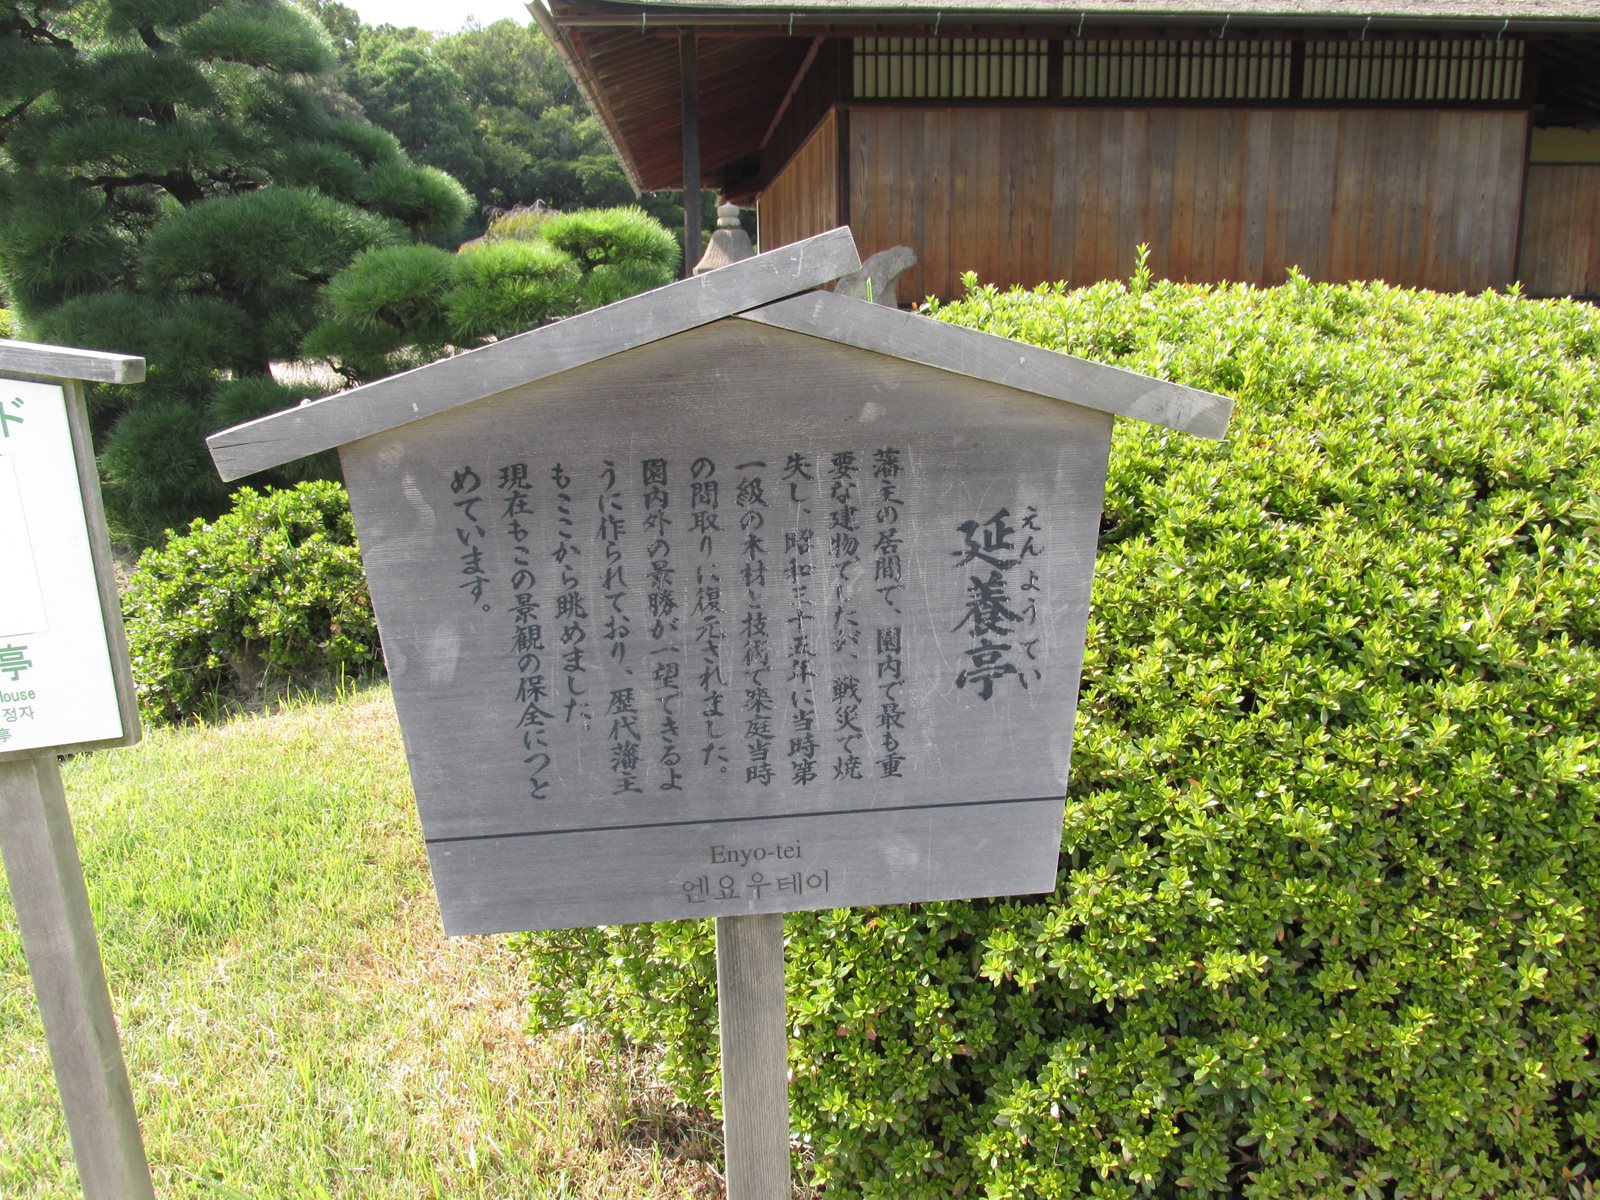 延養亭
えんようてい
藩主の居間で、園内で最も重
要な建物でしたが、戦災で焼
失し、昭和三十五年に当時第
一級の木材と技術で築庭当時
の間取りに復元されました。
園内外の景勝が一望できるよ
うに作られており、歴代藩主
もここから眺めました。
現在もこの景観の保全につと
めています。
Enyo-tei
엔요우테이
ド
亭
House
정자
亭